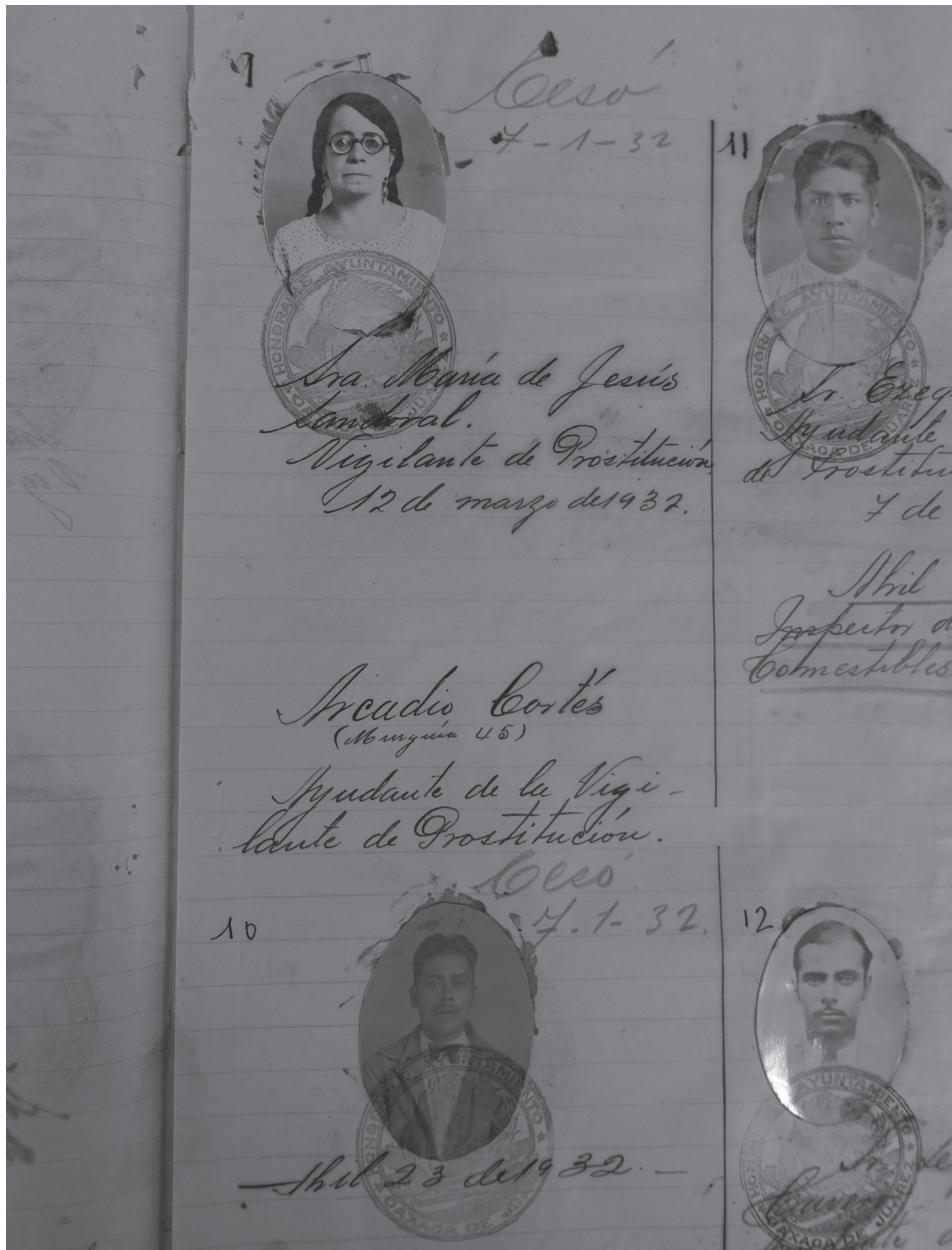 9
Cesó
7-1-32
HONORABLE AYUNTAMIENTO
Sra. María de Jesús
Sandoval.
Vigilante de Prostitución
12 de marzo de 1932.
Arcadio Cortés
(Murguía 45)
Ayudante de la Vigi-
lante de Prostitución.
10
Cesó
7.1-32.
AYUNTAMIENTO
OAXACA DE JUAREZ
Abril 23 de 1932.—
11
HONORABLE AYUNTAMIENTO
OAXACA DE JUAREZ
Sr.
Ayudante
de
7 de
Abril
Inspector
Comestibles
12.
AYUNTAMIENTO
OAXACA DE JUAREZ
Sr.